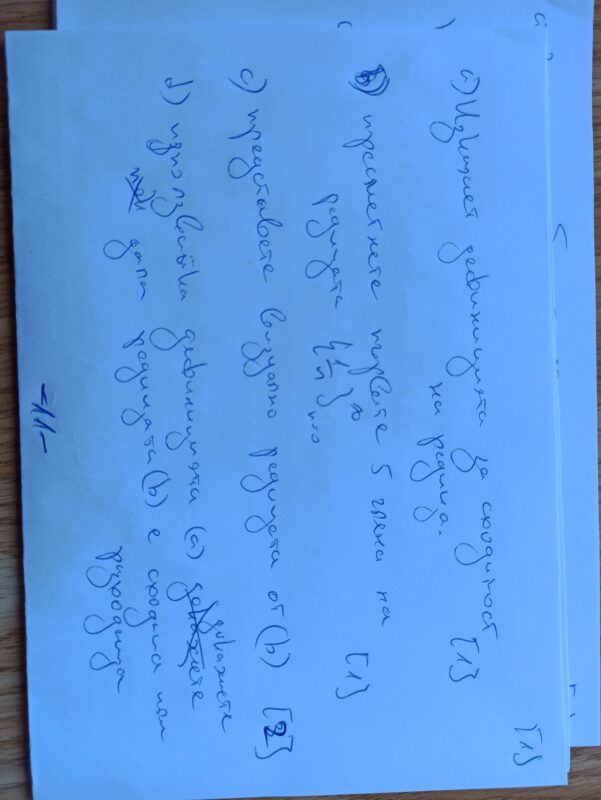 [1]
а) Изкажет дефиницията за сходимост
на редица. [1]
b) пресметнете първите 5 члена на
редицата {1/n}∞ n=0 [1]
c) представете визуално редицата от (b) [2]
d) използвайки дефиницията (а) докажете
дали редицата (b) е сходяща или
разходяща
-11-